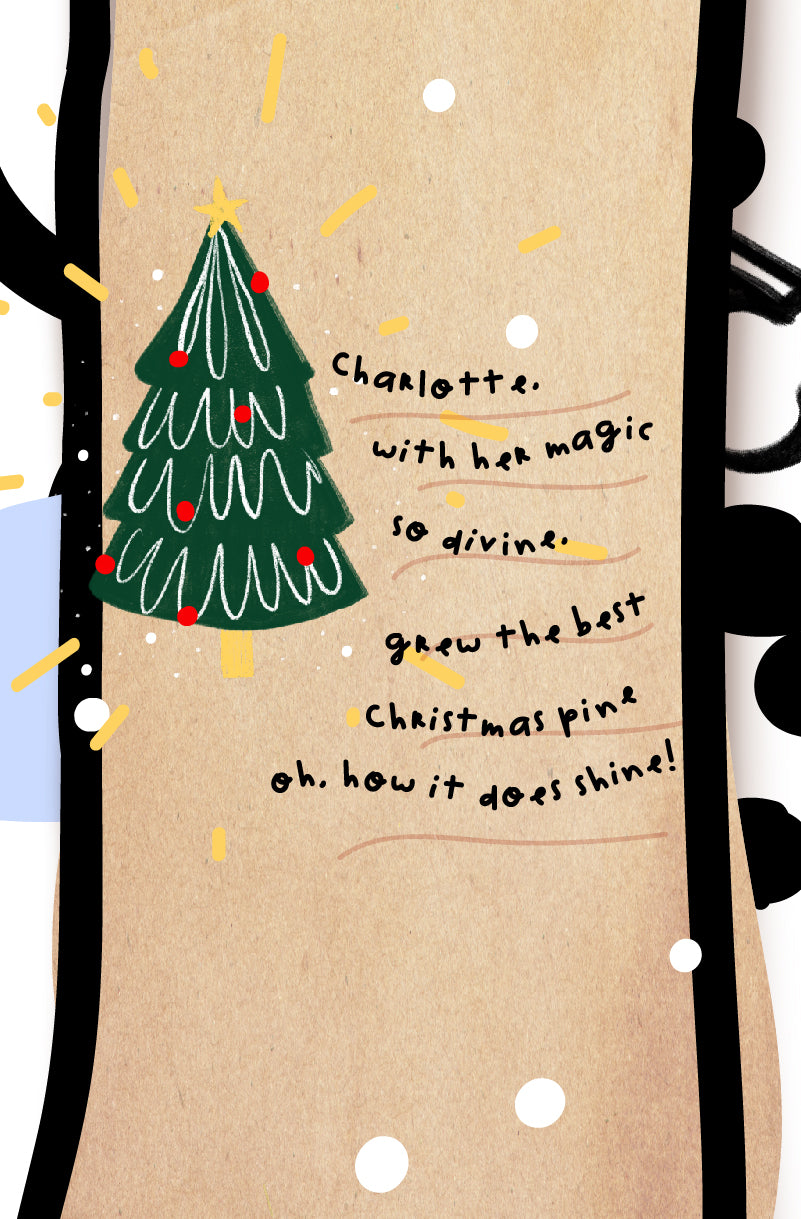 Charlotte.
with her magic
so divine.
grew the best
Christmas pine
oh. how it does shine!